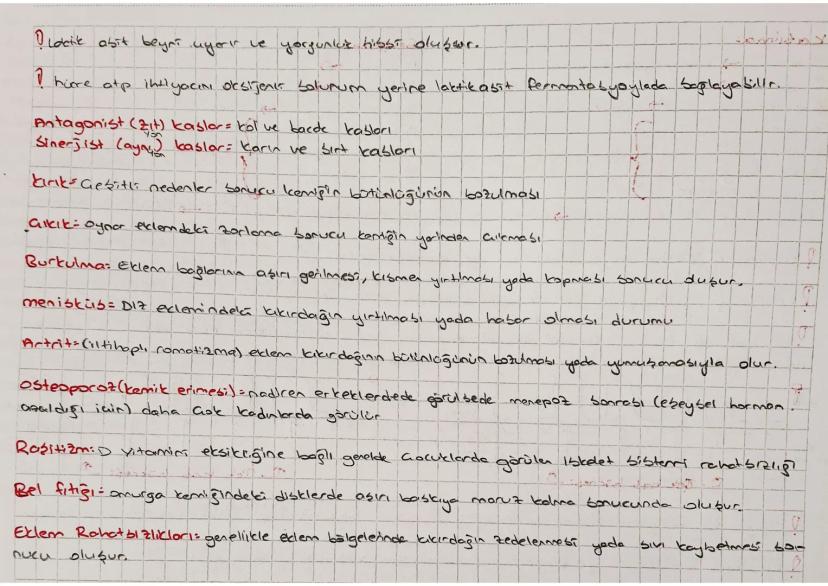 ! Laktik asit beyni uyarır ve yorgunluk hissi oluşur.
! hücre atp ihtiyacını oksijenli solunum yerine laktikasit fermentasyoylada sağlayabilir.
Antagonist (zıt yön) kaslar = kol ve bacde kasları
Sinerjist (aynı yön) kaslar = karın ve sırt kasları
Kırık = Çeşitli nedenler sonucu kemiğin bütünlüğünün bozulması
Çıkık = Oynar eklemdeki zorlama sonucu kemiğin yerinden çıkması
Burkulma = Eklem bağlarının aşırı gerilmesi, kısmen yırtılması yada kopması sonucu oluşur.
menisküs = Diz eklemindeki kıkırdağın yırtılması yada hasar olması durumu
Artrit = (iltihaplı romatizma) eklem kıkırdağının bütünlüğünün bozulması yada yumuşamasıyla olur.
Osteoporoz (kemik erimesi) = nadiren erkeklerdede görülsede menepoz sonrası (eşeysel hormon
azaldığı için) daha çok kadınlarda görülür
Raşitizm = D vitamini eksikliğine bağlı genelde çocuklarda görülen iskelet sistemi rahatsızlığı
Bel fıtığı = omurga kemiğindeki disklerde aşırı baskıya maruz kalma sonucunda oluşur.
Eklem Rahatsızlıkları = genellikle eklem bölgelerinde kıkırdağın zedelenmesi yada sıvı kaybetmesi so-
nucu oluşur.